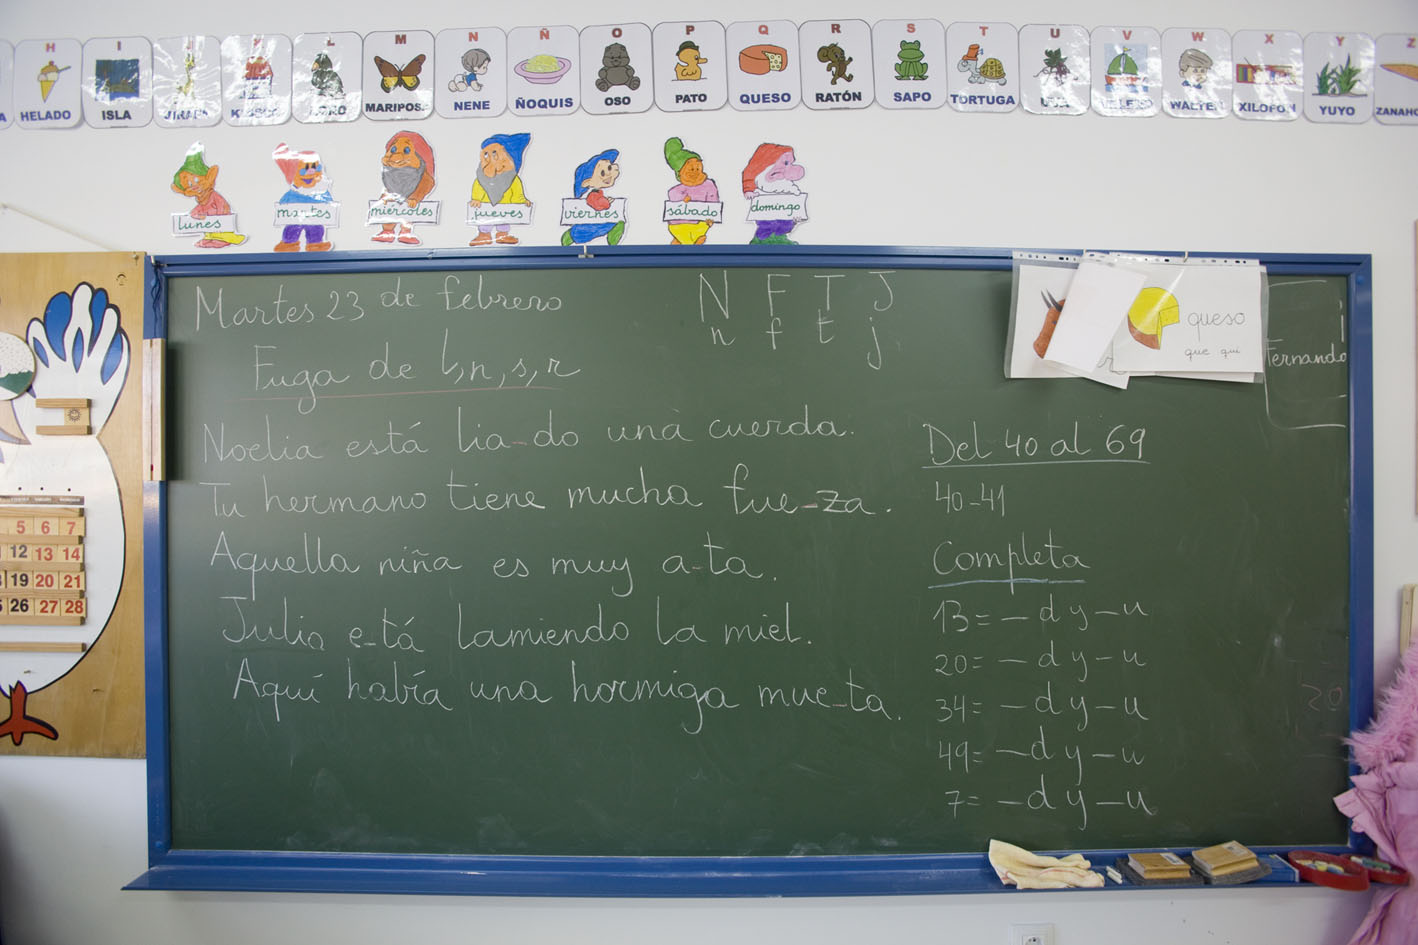 H I J K L M N Ñ O P Q R S T U V W X Y Z
HELADO ISLA MARIPOSA NENE ÑOQUIS OSO PATO QUESO RATÓN SAPO TORTUGA UVA VELERO WALTER XILOFON YUYO ZANAHO
lunes martes miércoles jueves viernes sábado domingo
Martes 23 de febrero
N F T J
n f t j
Fuga de l, n, s, r
Noelia está lia_do una cuerda.
Tu hermano tiene mucha fue_za.
Aquella niña es muy a_ta.
Julio e_tá lamiendo la miel.
Aquí había una hormiga mue_ta.
queso
que qui
Fernando
Del 40 al 69
40-41
Completa
13= _d y _u
20= _d y _u
34= _d y _u
49= _d y _u
7= _d y _u
20
5 6 7
12 13 14
19 20 21
26 27 28